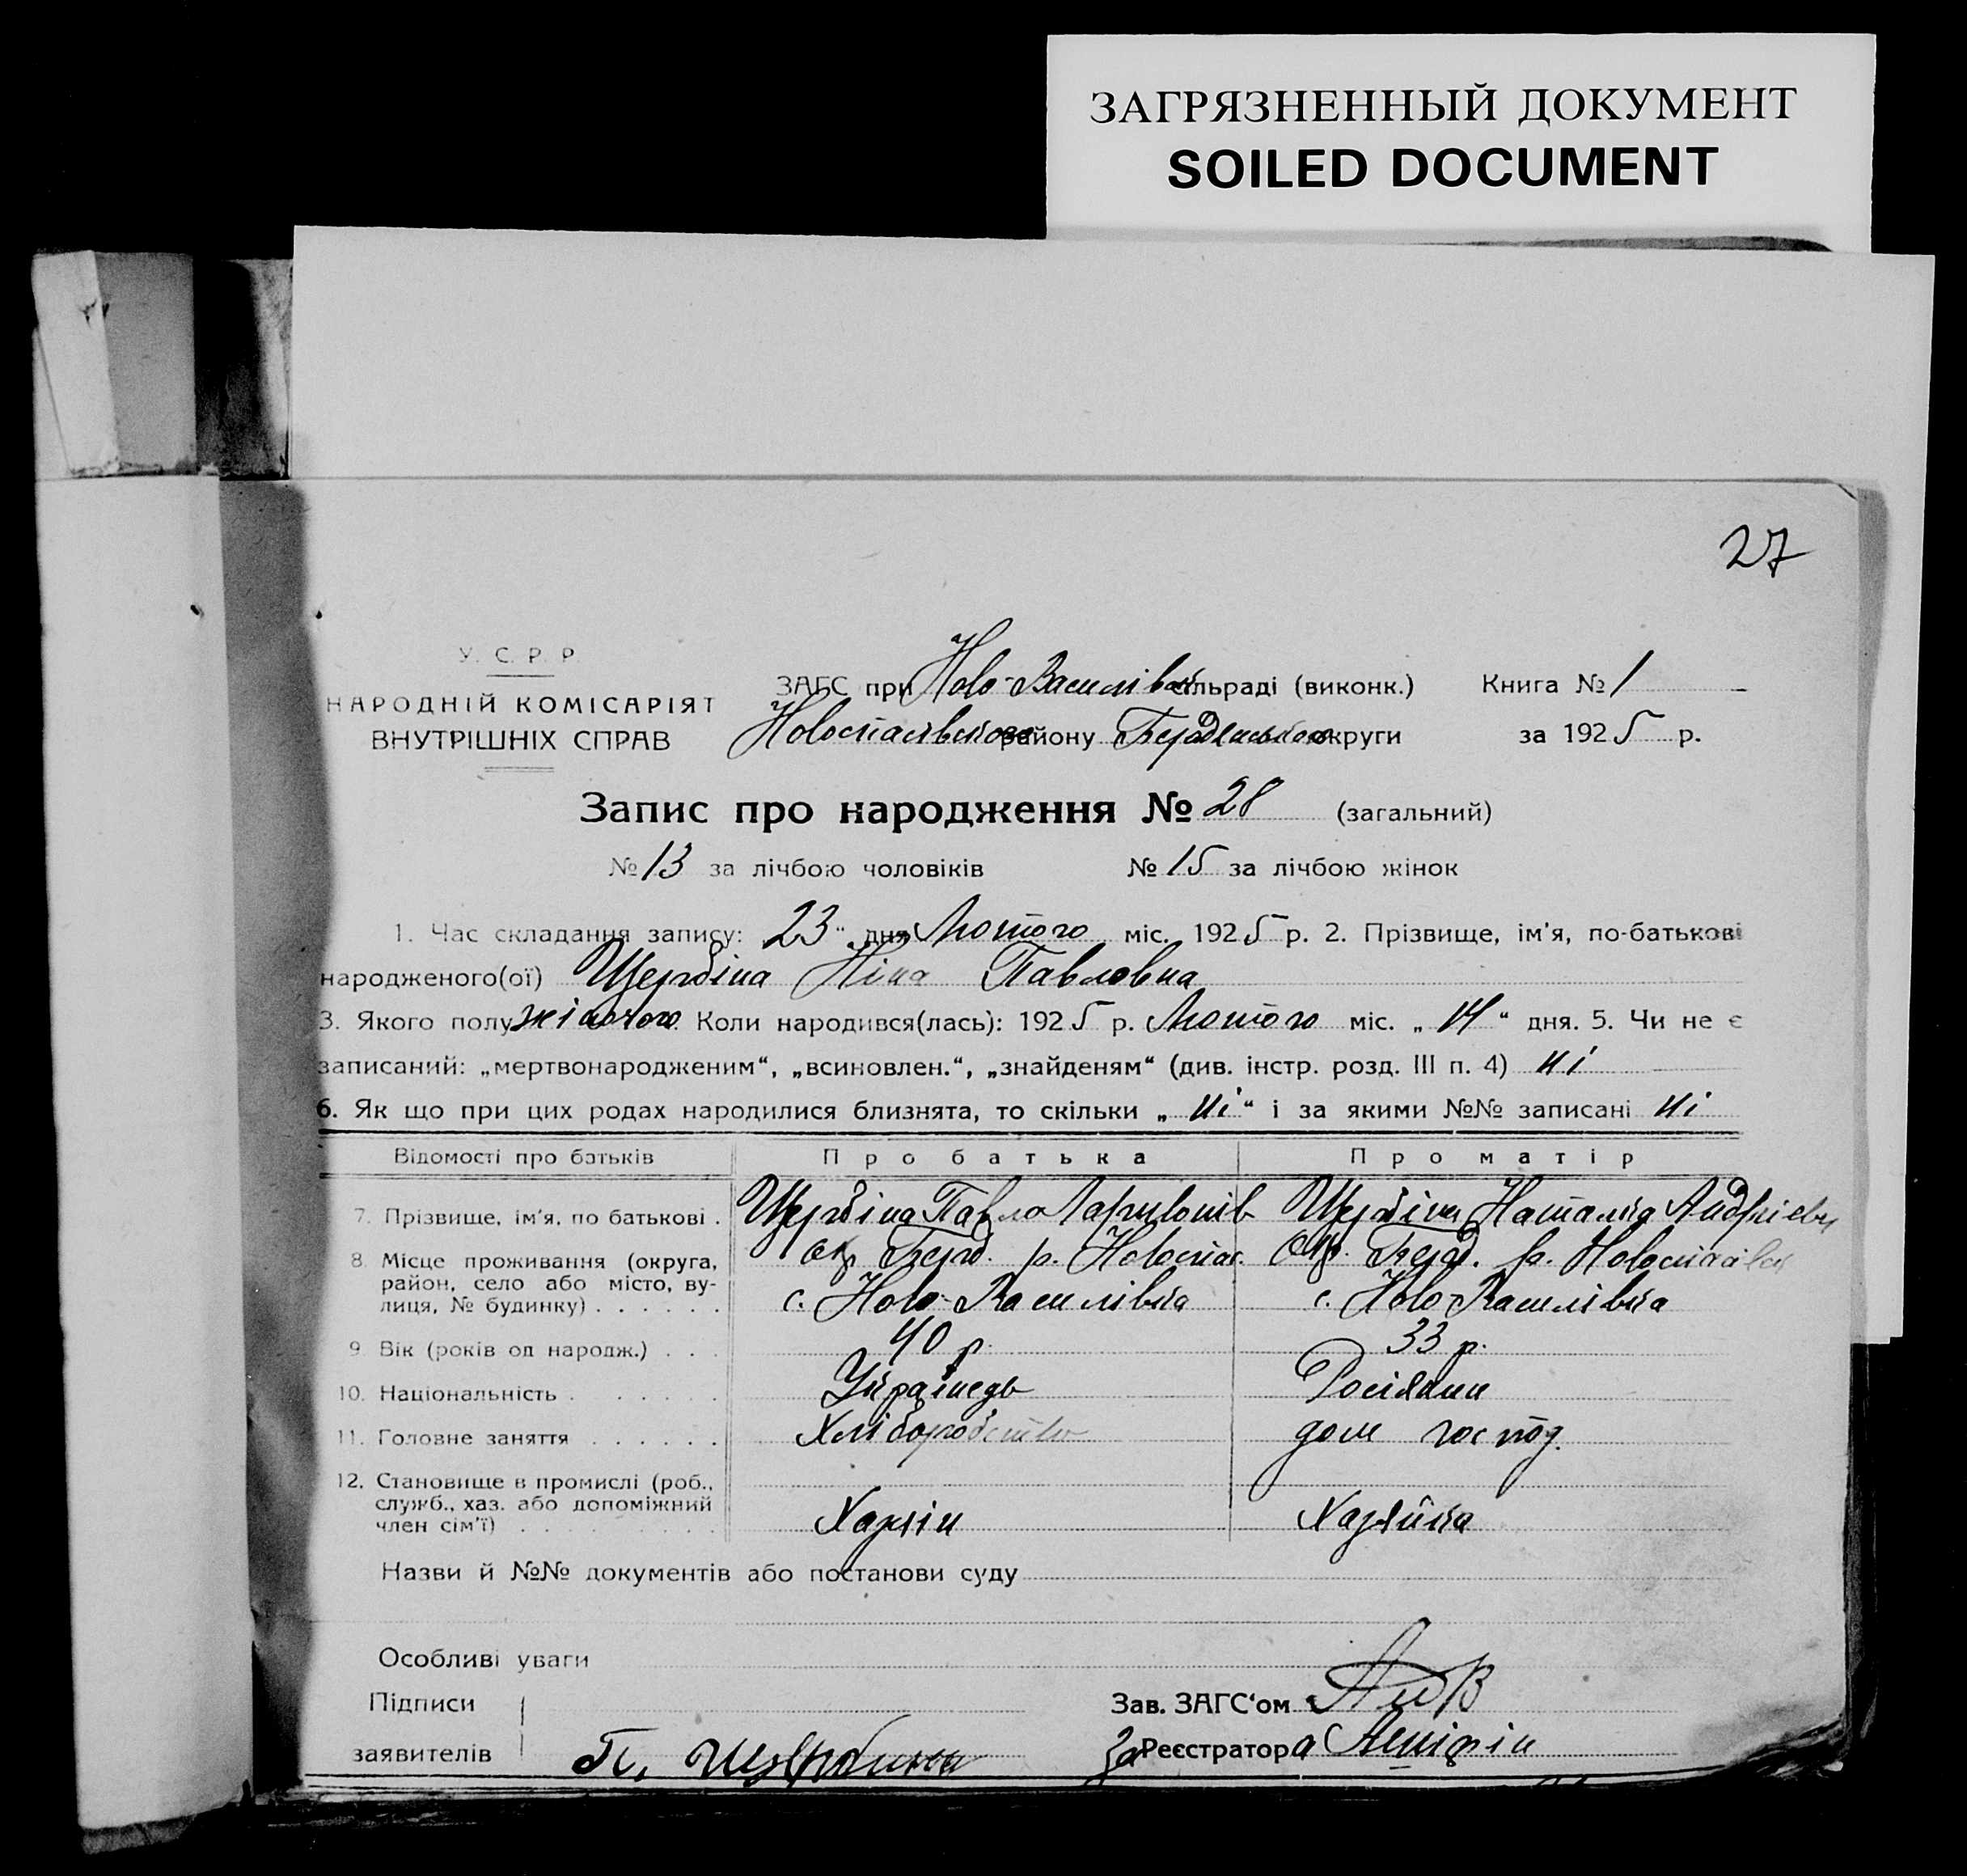 ЗАГРЯЗНЕННЫЙ ДОКУМЕНТ
SOILED DOCUMENT
27
У. С. Р. Р.
НАРОДНІЙ КОМІСАРІЯТ
ВНУТРІШНІХ СПРАВ
ЗАГС при Ново-Василівск сільраді (виконк.) Книга № 1
Новоспасівского району Бердянської округи за 1925 р.
Запис про народження № 28 (загальний)
№ 13 за лічбою чоловіків № 15 за лічбою жінок
1. Час складання запису: 23 " дня Лютого міс. 1925 р. 2. Прізвище, ім'я, по-батькові
народженого(ої) Щербіна Ніна Павловна
3. Якого полу жіночого Коли народився(лась): 1925 р. Лютого міс. „ 14 “ дня. 5. Чи не є
записаний: „мертвонародженим“, „всиновлен.“, „знайденям“ (див. інстр. розд. III п. 4) ні
6. Як що при цих родах народилися близнята, то скільки „ ні “ і за якими №№ записані ні
Відомості про батьків Про батька Про матір
7. Прізвище, ім'я, по батькові . Щербіна Павло Ларивонів Щербіна Наталка Андріевн
8. Місце проживання (округа, район, село або місто, вулиця, № будинку) . . . . . . Окр Берд. р. Новоспас. Окр. Берд. р. Новоспасівск
с. Ново-Василівка с. Ново-Василівка
9. Вік (років од народж.) . . . 40 р. 33 р.
10. Національність . . . . . . Українець Росіянка
11. Головне заняття . . . . . . Хліборобство дом господ.
12. Становище в промислі (роб., служб., хаз. або допоміжний член сім'ї) . . . . . . . . Хазяін Хазяйка
Назви й №№ документів або постанови суду
Особливі уваги
Підписи Зав. ЗАГС'ом
заявителів П. Щербина За Реєстратора